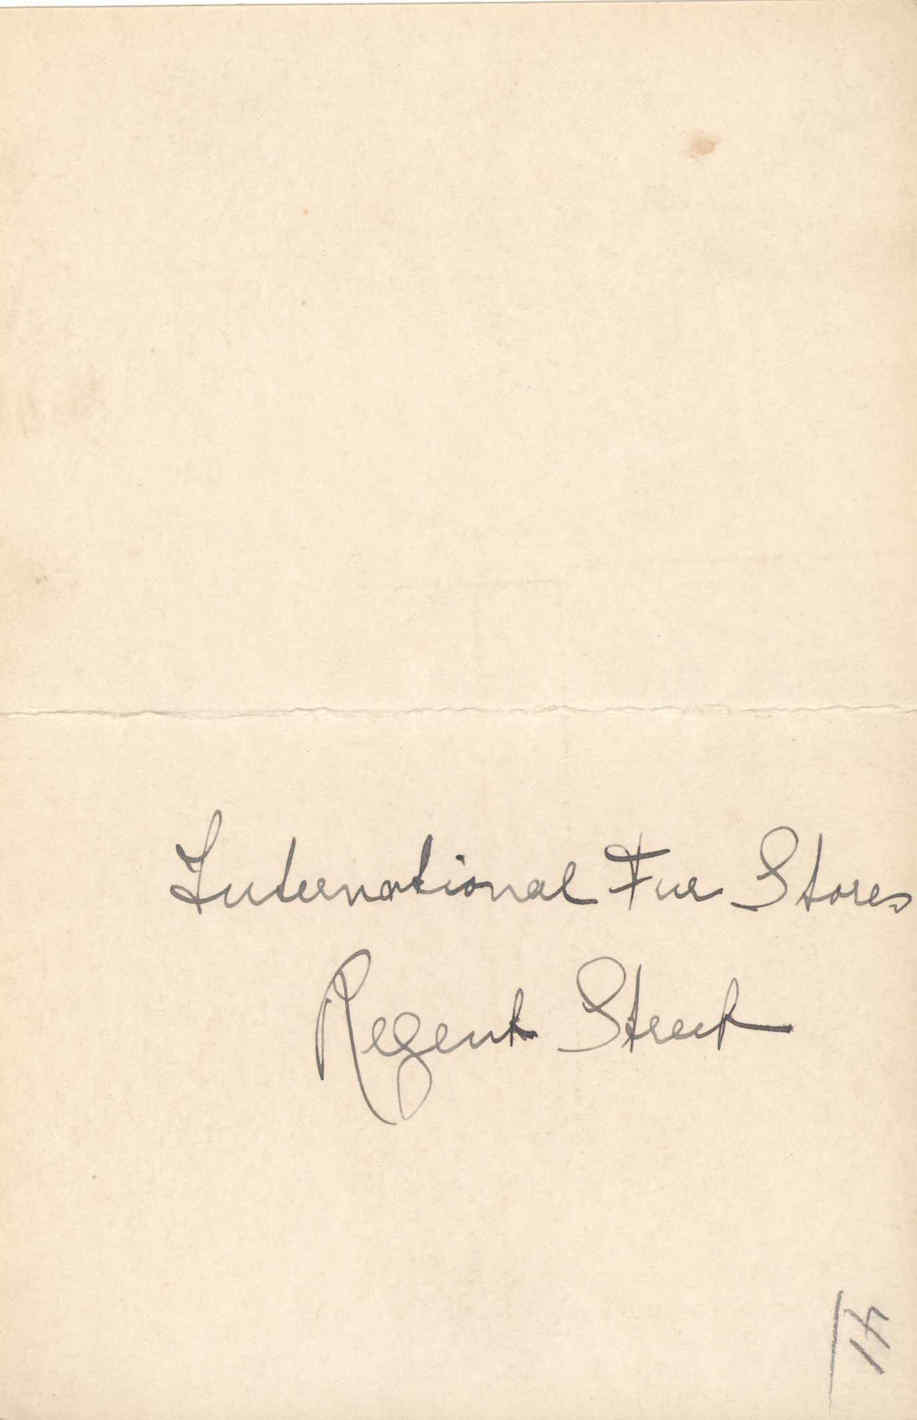 International Fur Stores
Regent Street
41